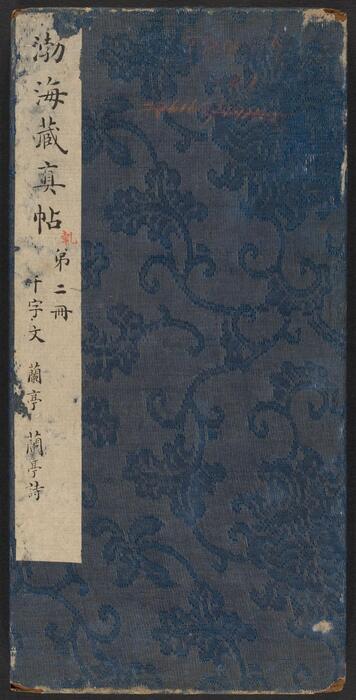 渤海藏真帖
第二冊
千字文 蘭亭 蘭亭詩